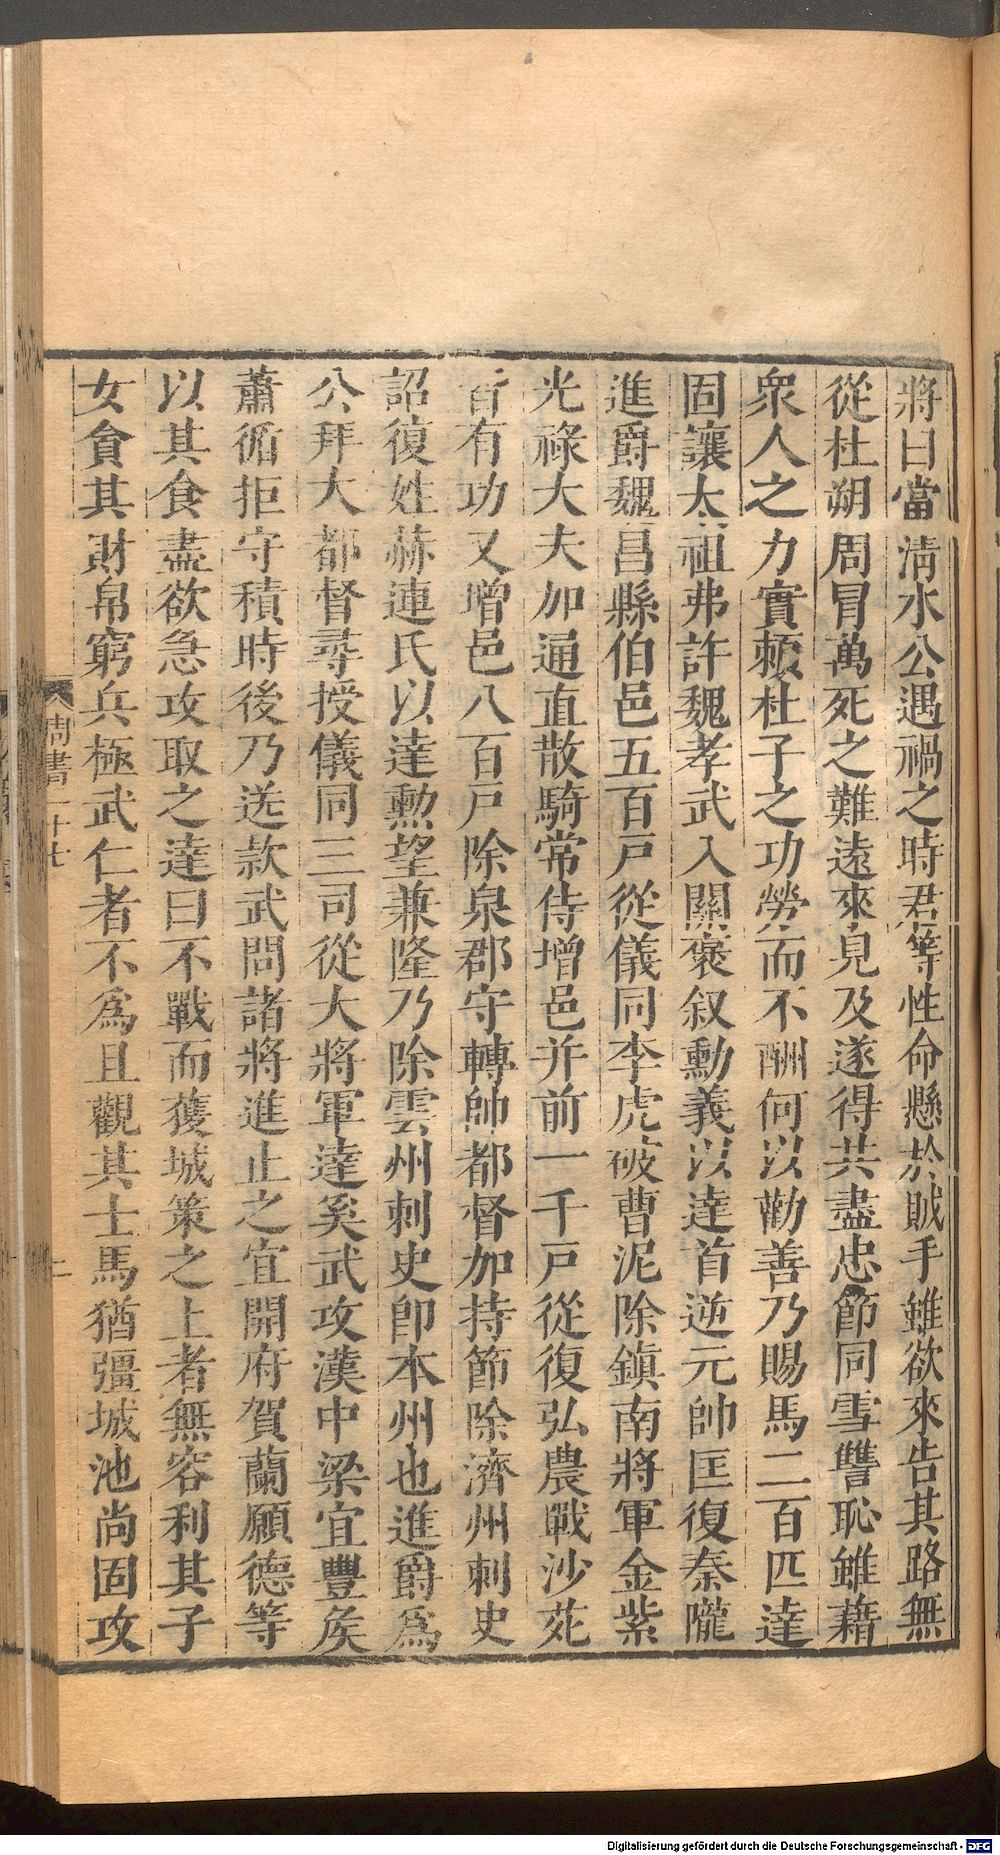 將曰當淸水公遇禍之時君等性命懸於賊手雖欲來告其路無
從杜朔周冒萬死之難遠來見及遂得共盡忠節同雪讐恥雖藉
衆人之力實頼杜子之功勞而不酬何以勸善乃賜馬二百匹達
固讓太祖弗許魏孝武入關褒叙勳義以達首逆元帥匡復秦隴
進爵魏昌縣伯邑五百戸從儀同李虎破曹泥除鎮南將軍金紫
光祿大夫加通直散騎常侍增邑并前一千戸從復弘農戰沙苑
皆有功又增邑八百戸除泉郡守轉帥都督加持節除濟州刺史
詔復姓赫連氏以達勲望兼隆乃除雲州刺史即本州也進爵爲
公拜大都督尋授儀同三司從大將軍達奚武攻漢中梁宜豐矦
蕭循拒守積時後乃送款武問諸將進止之宜開府賀蘭願德等
以其食盡欲急攻取之達曰不戰而獲城策之上者無容利其子
女貪其財帛窮兵極武仁者不爲且觀其士馬猶彊城池尚固攻
周書二十七
二
Digitalisierung gefördert durch die Deutsche Forschungsgemeinschaft - DFG